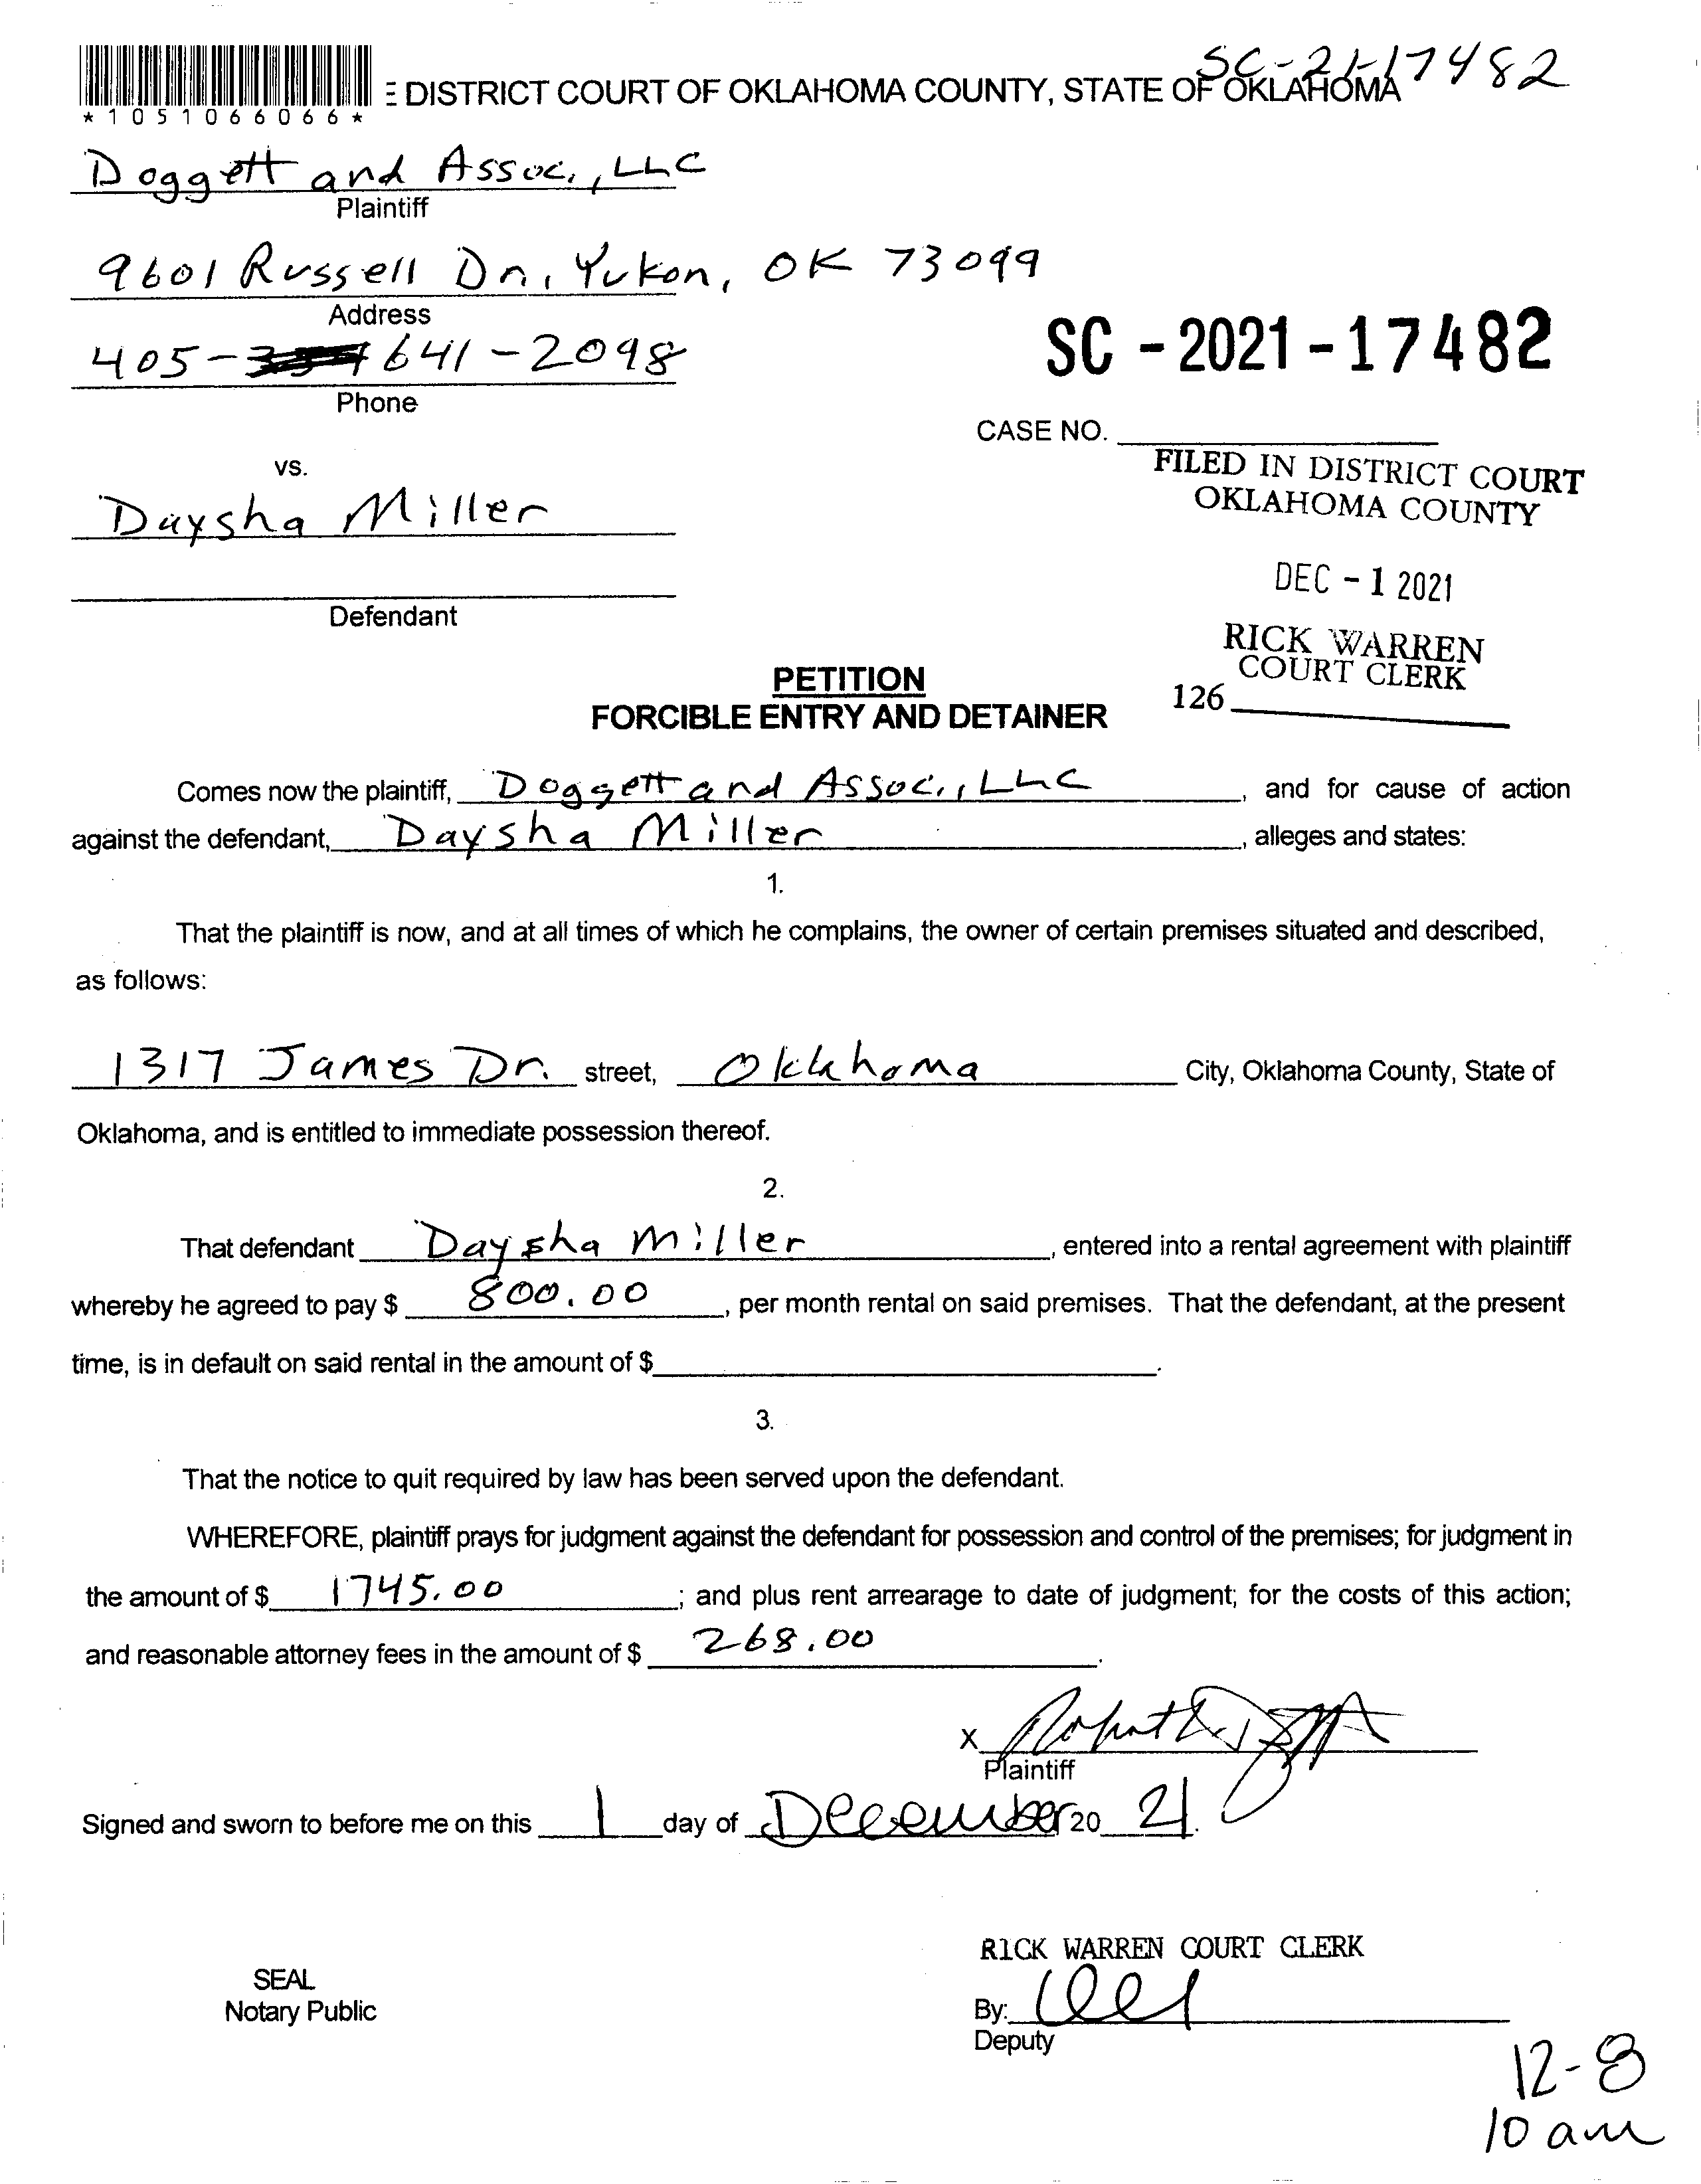 SC-21-17482
E DISTRICT COURT OF OKLAHOMA COUNTY, STATE OF OKLAHOMA
*1051066066*
Doggett and Assoc., LLC
Plaintiff
9601 Russell Dr., Yukon, OK 73099
Address
405- 641-2098
Phone
SC - 2021 - 17482
CASE NO.
vs.
FILED IN DISTRICT COURT
OKLAHOMA COUNTY
Daysha Miller
DEC - 1 2021
Defendant
RICK WARREN
COURT CLERK
126
PETITION
FORCIBLE ENTRY AND DETAINER
Comes now the plaintiff, Doggett and Assoc., LLC, and for cause of action
against the defendant, Daysha Miller, alleges and states:
1.
That the plaintiff is now, and at all times of which he complains, the owner of certain premises situated and described,
as follows:
1317 James Dr. street, Oklahoma City, Oklahoma County, State of
Oklahoma, and is entitled to immediate possession thereof.
2.
That defendant Daysha Miller, entered into a rental agreement with plaintiff
whereby he agreed to pay $ 800.00, per month rental on said premises. That the defendant, at the present
time, is in default on said rental in the amount of $ .
3.
That the notice to quit required by law has been served upon the defendant.
WHEREFORE, plaintiff prays for judgment against the defendant for possession and control of the premises; for judgment in
the amount of $ 1745.00; and plus rent arrearage to date of judgment; for the costs of this action;
and reasonable attorney fees in the amount of $ 268.00.
X
Plaintiff
Signed and sworn to before me on this 1 day of December 20 21.
RICK WARREN COURT CLERK
SEAL
Notary Public
By:
Deputy
12-8
10 am